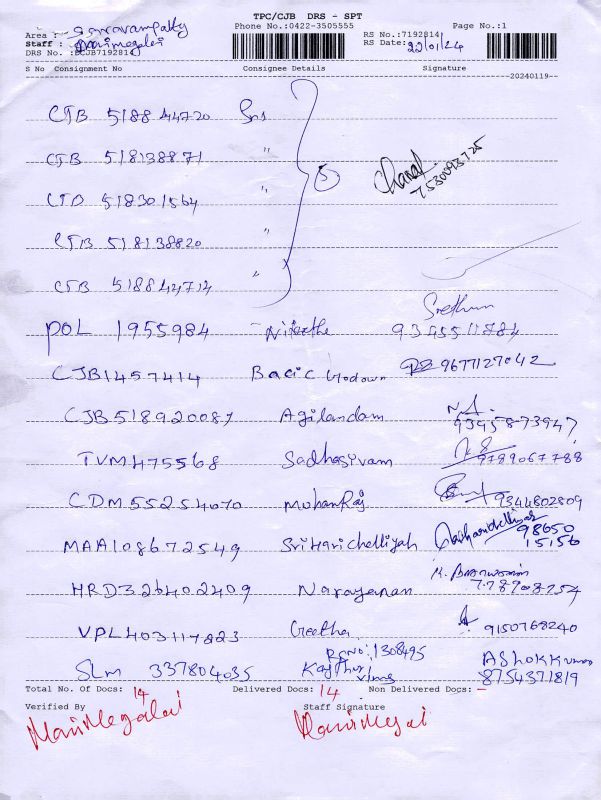 TPC/CJB DRS - SPT
Phone No.:0422-3505555 Page No.:1
Area : Saravanampatty RS No.:7192814
Staff : Manimegalai RS Date: 22/01/24
DRS No. :CJB7192814
S No Consignment No Consignee Details Signature
20240119
CJB 518844720 Sns
CJB 518138871 "
CJB 518301564 " 5
CJB 518138820 7530093725
CJB 518844714 "
POL 1955984 9345511884
CJB1457414 Bacic Godown 9677127042
CJB518920087 Agilandam 9345873947
TVM475568 Sadhasivam 9789067788
CDM55254070 MohanRaj 9344802809
MAA108672549 SriHarichelliyah 98650 15156
HRD326402409 Narayanan
VPL403117823 Geetha 9150768240
RSNO: 1308495
SLM 337804035 AShokkumar 8754371819
Total No. Of Docs: 14 Delivered Docs: 14 Non Delivered Docs: -
Verified By Staff Signature
Manimegalai Manimegai